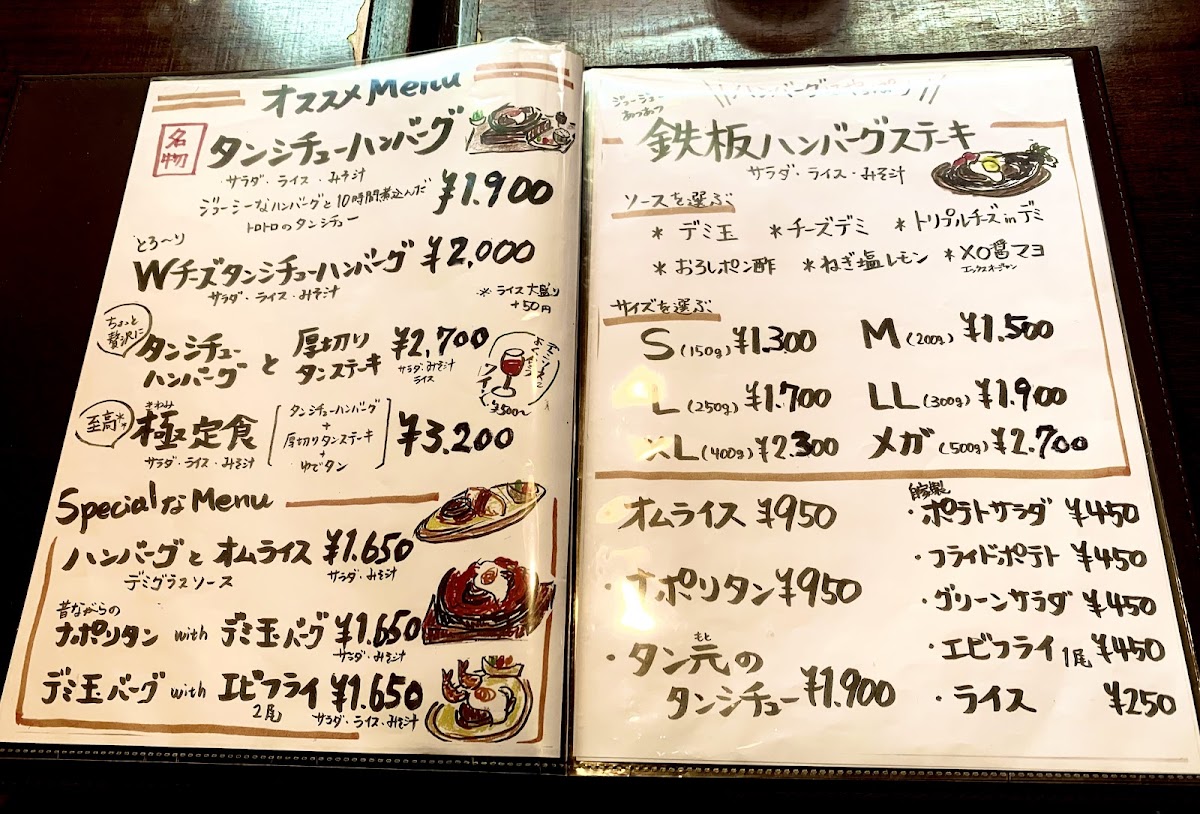 オススメ Menu
名物
タンシチューハンバーグ
サラダ・ライス・みそ汁
ジューシーなハンバーグと10時間煮込んだ
トロトロのタンシチュー
¥1.900
とろ〜り
Wチーズタンシチューハンバーグ ¥2,000
サラダ・ライス・みそ汁
※ライス大盛り
+50円
ちょっと
贅沢に
タンシチュー
ハンバーグ
と
厚切り
タンステーキ
¥2,700
サラダ・みそ汁
ライス
ワイン
¥500〜
至高
きわみ
極定食
サラダ・ライス・みそ汁
タンシチューハンバーグ
+
厚切りタンステーキ
+
ゆでタン
¥3,200
Specialな Menu
ハンバーグと オムライス ¥1.650
デミグラスソース
サラダ・みそ汁
昔ながらの
ナポリタン with デミ玉バーグ ¥1.650
サラダ・みそ汁
デミ玉バーグ with エビフライ ¥1.650
2尾
サラダ・ライス・みそ汁
ジュージュー
あつあつ
鉄板ハンバーグステーキ
サラダ・ライス・みそ汁
ソースを選ぶ
* デミ玉 * チーズデミ * トリプルチーズinデミ
* おろしポン酢 * ねぎ塩レモン * XO醤マヨ
エックスオージャン
サイズを選ぶ
S (150g) ¥1.300 M (200g) ¥1.500
L (250g) ¥1.700 LL (300g) ¥1.900
XL (400g) ¥2.300 メガ (500g) ¥2.700
オムライス ¥950
・ナポリタン ¥950
もと
・タン元の
タンシチュー ¥1.900
自家製
・ポテトサラダ ¥450
・フライドポテト ¥450
・グリーンサラダ ¥450
・エビフライ 1尾 ¥450
・ライス ¥250